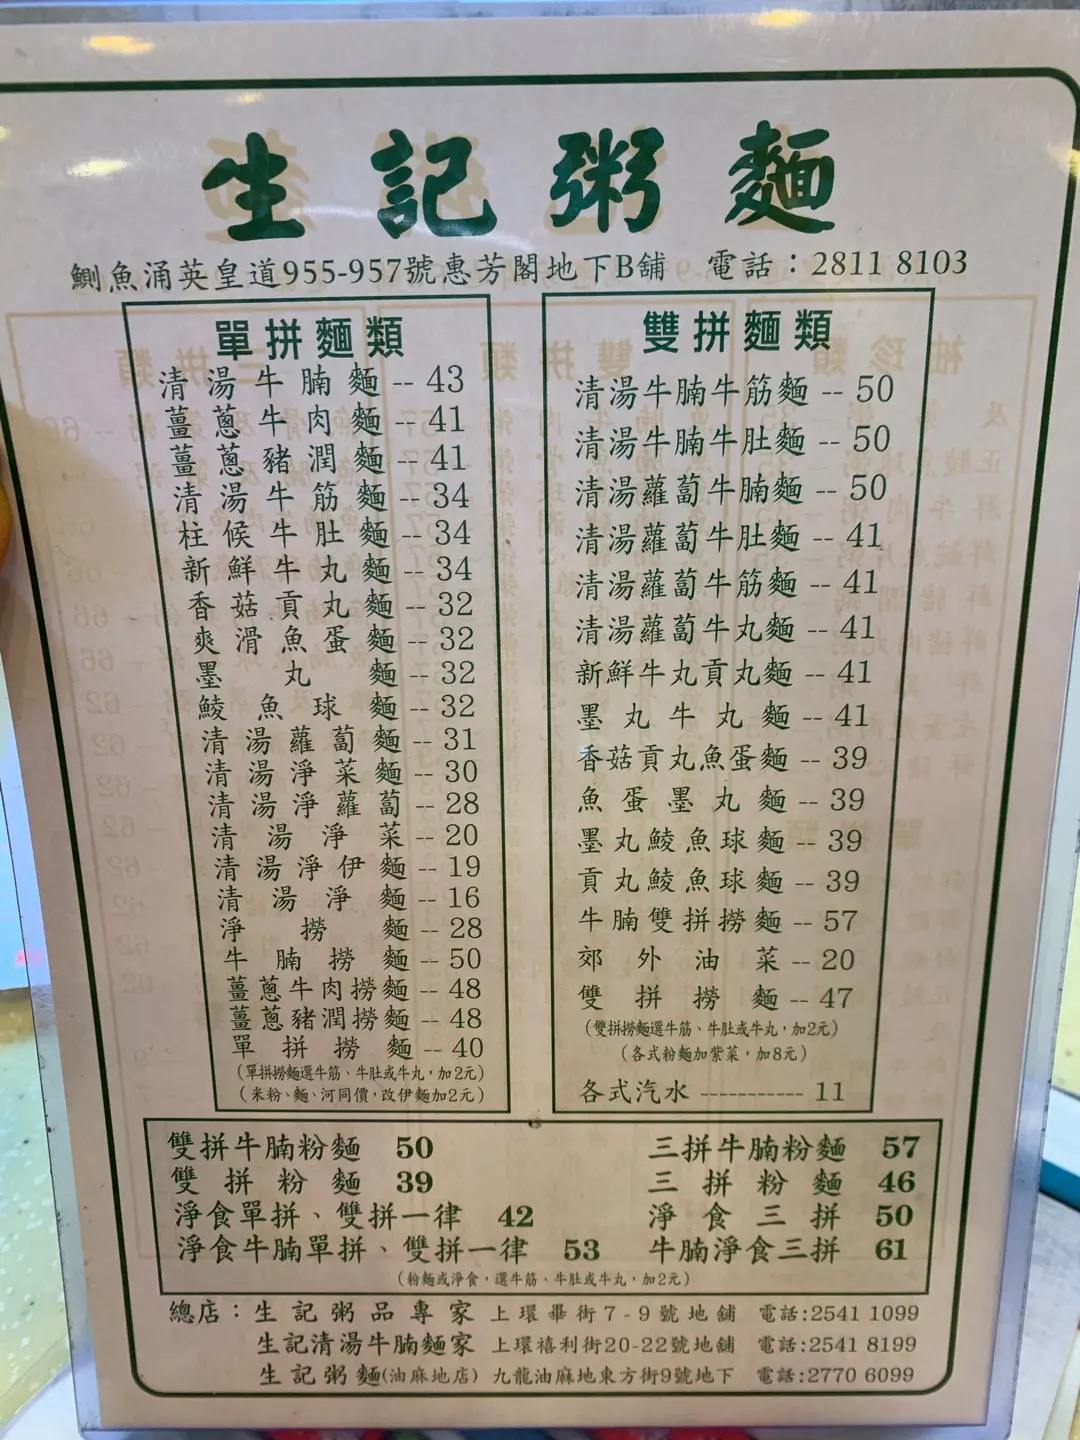 生記粥麵
鰂魚涌英皇道955-957號惠芳閣地下B舖 電話：2811 8103
單拼麵類
清湯牛腩麵 -- 43
薑蔥牛肉麵 -- 41
薑蔥豬潤麵 -- 41
清湯牛筋麵 -- 34
柱候牛肚麵 -- 34
新鮮牛丸麵 -- 34
香菇貢丸麵 -- 32
爽滑魚蛋麵 -- 32
墨丸麵 -- 32
鯪魚球麵 -- 32
清湯蘿蔔麵 -- 31
清湯淨菜麵 -- 30
清湯淨蘿蔔 -- 28
清湯淨菜 -- 20
清湯淨伊麵 -- 19
清湯淨麵 -- 16
淨撈麵 -- 28
牛腩撈麵 -- 50
薑蔥牛肉撈麵 -- 48
薑蔥豬潤撈麵 -- 48
單拼撈麵 -- 40
（單拼撈麵選牛筋、牛肚或牛丸，加2元）
（米粉、麵、河同價，改伊麵加2元）
雙拼麵類
清湯牛腩牛筋麵 -- 50
清湯牛腩牛肚麵 -- 50
清湯蘿蔔牛腩麵 -- 50
清湯蘿蔔牛肚麵 -- 41
清湯蘿蔔牛筋麵 -- 41
清湯蘿蔔牛丸麵 -- 41
新鮮牛丸貢丸麵 -- 41
墨丸牛丸麵 -- 41
香菇貢丸魚蛋麵 -- 39
魚蛋墨丸麵 -- 39
墨丸鯪魚球麵 -- 39
貢丸鯪魚球麵 -- 39
牛腩雙拼撈麵 -- 57
郊外油菜 -- 20
雙拼撈麵 -- 47
（雙拼撈麵選牛筋、牛肚或牛丸，加2元）
（各式粉麵加紫菜，加8元）
各式汽水 ----------- 11
雙拼牛腩粉麵 50 三拼牛腩粉麵 57
雙拼粉麵 39 三拼粉麵 46
淨食單拼、雙拼一律 42 淨食三拼 50
淨食牛腩單拼、雙拼一律 53 牛腩淨食三拼 61
（粉麵或淨食，選牛筋、牛肚或牛丸，加2元）
總店：生記粥品專家 上環畢街7-9號地舖 電話:2541 1099
生記清湯牛腩麵家 上環禧利街20-22號地舖 電話:2541 8199
生記粥麵(油麻地店) 九龍油麻地東方街9號地下 電話:2770 6099